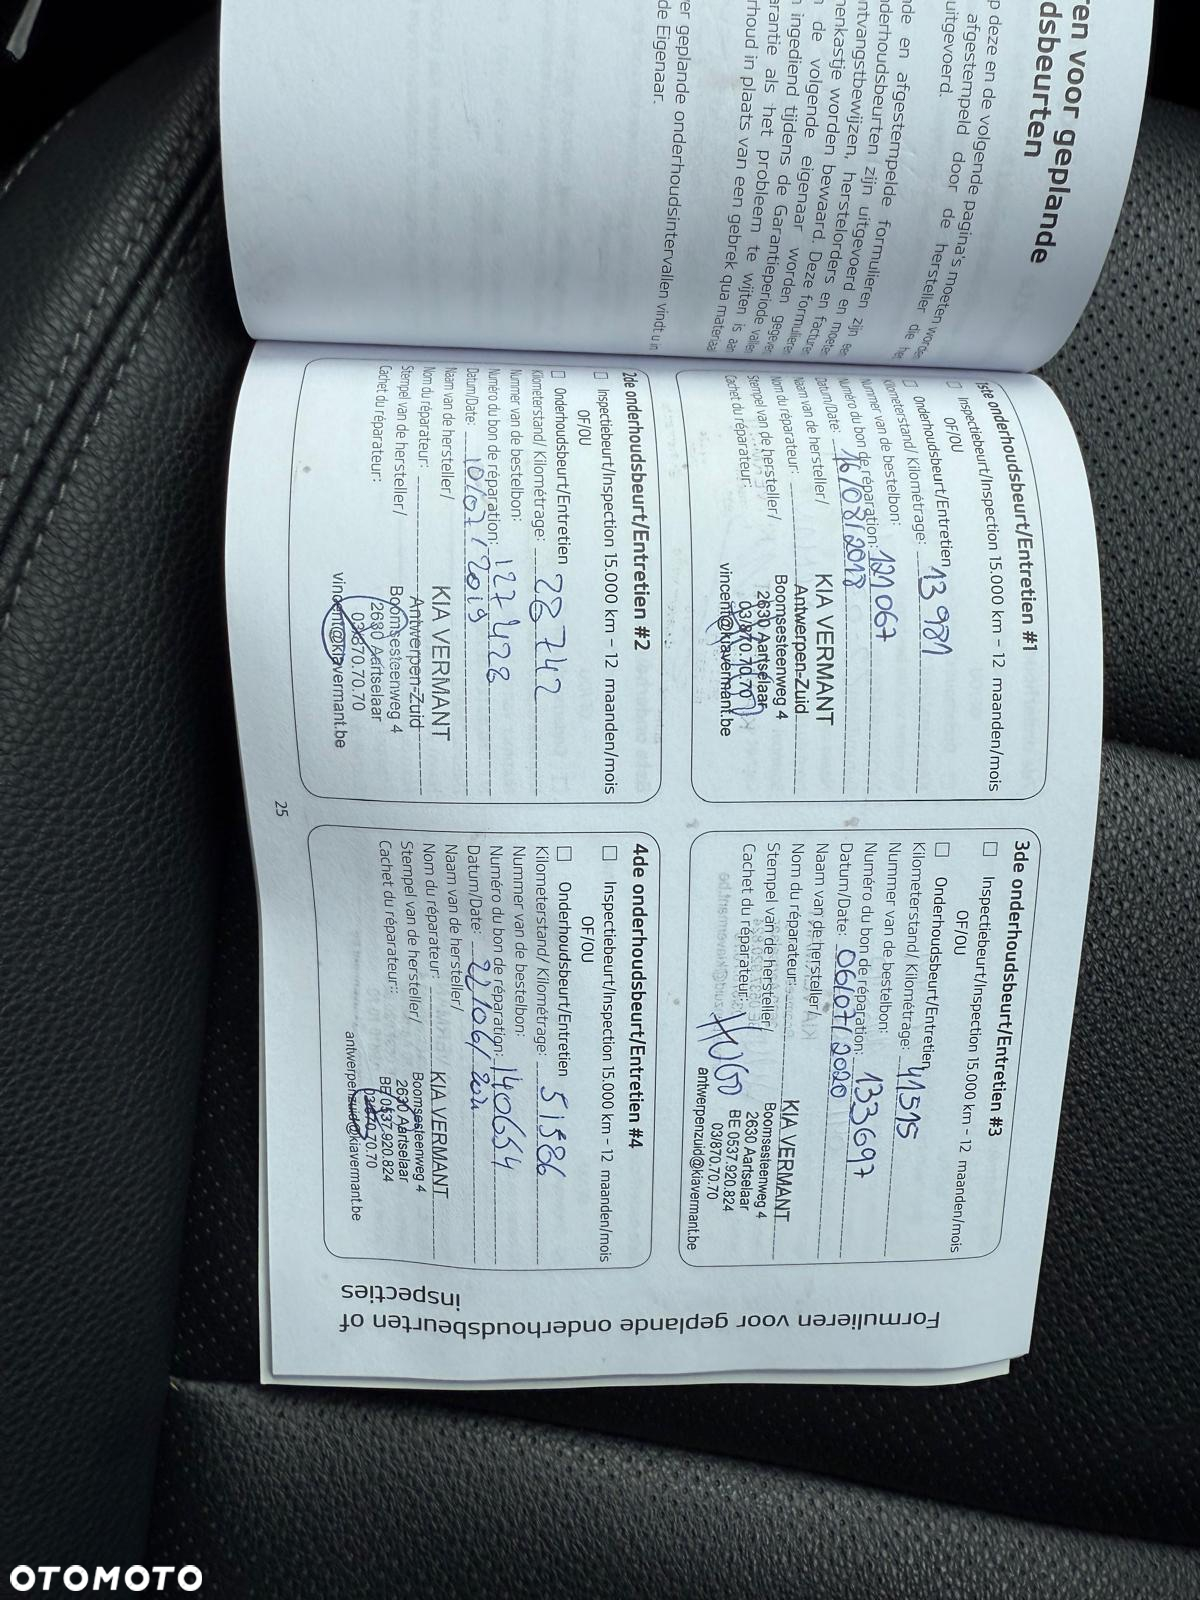 ren voor geplande
dsbeurten
p deze en de volgende pagina's moeten worden
afgestempeld door de hersteller die
uitgevoerd.
nde en afgestempelde formulieren zijn een
nderhoudsbeurten zijn uitgevoerd en moeten
ntvangstbewijzen, herstelorders en facturen
enkastje worden bewaard. Deze formulieren
n de volgende eigenaar worden gegeven
n ingediend tijdens de Garantieperiode vallen
arantie als het probleem te wijten is aan
rhoud in plaats van een gebrek qua materiaal
er geplande onderhoudsintervallen vindt u in
de Eigenaar.
1ste onderhoudsbeurt/Entretien #1
Inspectiebeurt/Inspection 15.000 km - 12 maanden/mois
OF/OU
Onderhoudsbeurt/Entretien
Kilometerstand/ Kilométrage: 13 981
Nummer van de bestelbon:
Numéro du bon de réparation: 121067
Datum/Date: 16/08/2018
Naam van de hersteller/
Nom du réparateur:
Stempel van de hersteller/
Cachet du réparateur:
KIA VERMANT
Antwerpen-Zuid
Boomsesteenweg 4
2630 Aartselaar
03/870.70.70
vincent@kiavermant.be
2de onderhoudsbeurt/Entretien #2
Inspectiebeurt/Inspection 15.000 km - 12 maanden/mois
OF/OU
Onderhoudsbeurt/Entretien
Kilometerstand/ Kilométrage: 28 742
Nummer van de bestelbon:
Numéro du bon de réparation: 127428
Datum/Date: 10/07/2019
Naam van de hersteller/
Nom du réparateur:
Stempel van de hersteller/
Cachet du réparateur:
KIA VERMANT
Antwerpen-Zuid
Boomsesteenweg 4
2630 Aartselaar
03/870.70.70
vincent@kiavermant.be
25
3de onderhoudsbeurt/Entretien #3
Inspectiebeurt/Inspection 15.000 km - 12 maanden/mois
OF/OU
Onderhoudsbeurt/Entretien
Kilometerstand/ Kilométrage: 41515
Nummer van de bestelbon:
Numéro du bon de réparation: 133697
Datum/Date: 06/07/2020
Naam van de hersteller/
Nom du réparateur:
Stempel van de hersteller/
Cachet du réparateur:
HUGO
KIA VERMANT
Boomsesteenweg 4
2630 Aartselaar
BE 0537.920.824
03/870.70.70
antwerpenzuid@kiavermant.be
4de onderhoudsbeurt/Entretien #4
Inspectiebeurt/Inspection 15.000 km - 12 maanden/mois
OF/OU
Onderhoudsbeurt/Entretien
Kilometerstand/ Kilométrage: 51586
Nummer van de bestelbon:
Numéro du bon de réparation: 140654
Datum/Date: 22/06/2021
Naam van de hersteller/
Nom du réparateur:
Stempel van de hersteller/
Cachet du réparateur::
KIA VERMANT
Boomsesteenweg 4
2630 Aartselaar
BE 0537.920.824
03/870.70.70
antwerpenzuid@kiavermant.be
Formulieren voor geplande onderhoudsbeurten of
inspecties
OTOMOTO